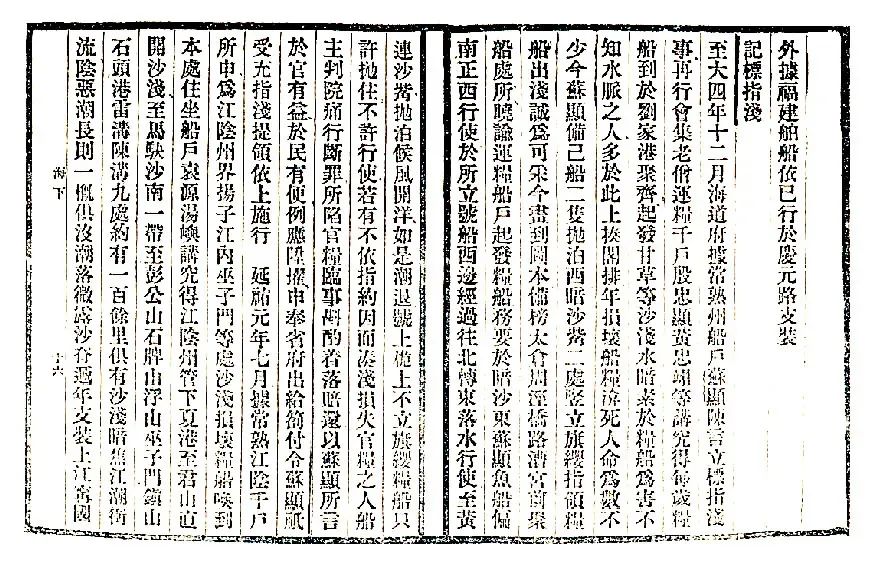 外據福建舶船依已行於慶元路支裝
記標指淺
至大四年十二月海道府據常熟州船戶蘇顯陳言立標指淺
事再行會集老僧運糧千戶殷忠顯黃忠翊等講究得每歲糧
船到於劉家港聚齊起發甘草等沙淺水暗素於糧船為害不
知水脈之人多於此上揍閣排年損壞船糧渰死人命為數不
少今蘇顯備己船二隻拋泊西暗沙觜二處豎立旗纓指領糧
船出淺誠為可采今畫到圖本備榜太倉周涇橋路漕宮前聚
船處所曉諭運糧船戶起發糧船務要於暗沙東蘇顯魚船偏
南正西行使於所立號船西邊經過往北轉東落水行使至黃
連沙觜拋泊候風開洋如是潮退號上桅上不立旗纓糧船只
許拋住不許行使若有不依指約因而湊淺損失官糧之人船
主判院痛行斷罪所陷官糧臨事斟酌着落賠還以蘇顯所言
於官有益於民有便例應陞擢申奉省府出給箚付令蘇顯祗
受充指淺提領依上施行 延祐元年七月據常熟江陰千戶
所申為江陰州界揚子江內巫子門等處沙淺損壞糧船喚到
本處住坐船戶袁源湯嶼講究得江陰州管下夏港至君山直
開沙淺至馬馱沙南一帶至彭公山石牌山浮山巫子門鎮山
石頭港雷溝陳溝九處約有一百餘里俱有沙淺暗焦江潮衝
流陰惡潮長則一概俱沒潮落微露沙脊遞年支裝上江寧國
海下
十六